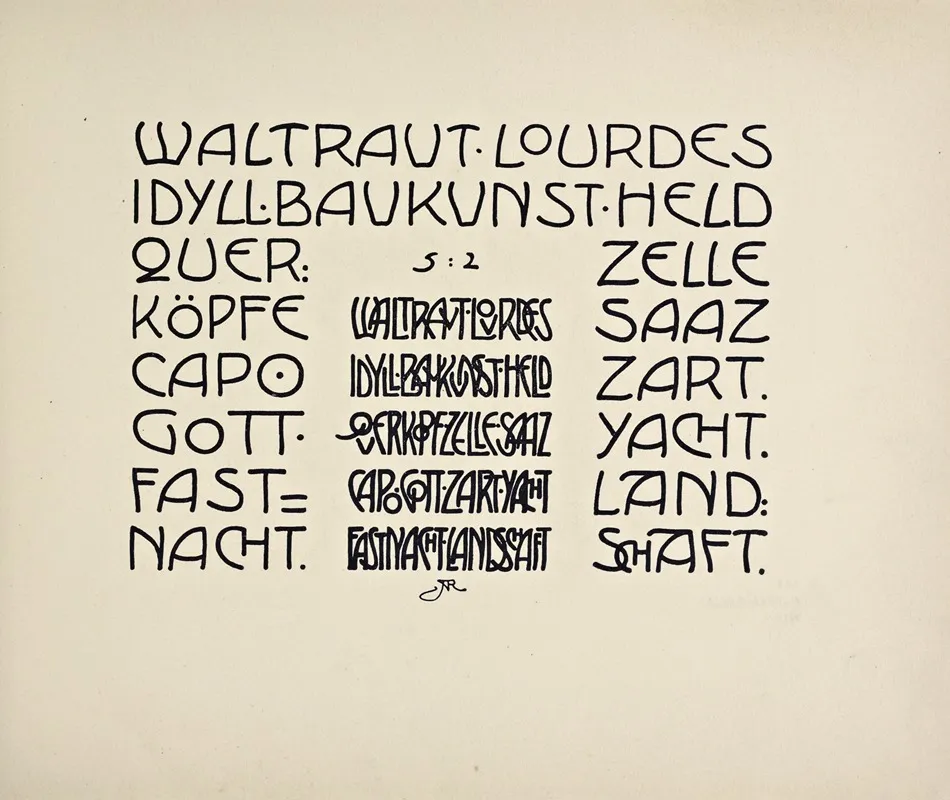 WALTRAUT·LOURDES
IDYLL·BAUKUNST·HELD
QUER:
KÖPFE
CAPO
GOTT·
FAST=
NACHT.
5:2
WALTRAUT·LOURDES
IDYLL·BAUKUNST·HELD
QUERKOPF·ZELLE·SAAZ
CAPO·GOTT·ZART·YACHT
FASTNACHT·LANDSCHAFT
ZELLE
SAAZ
ZART.
YACHT.
LAND:
SCHAFT.